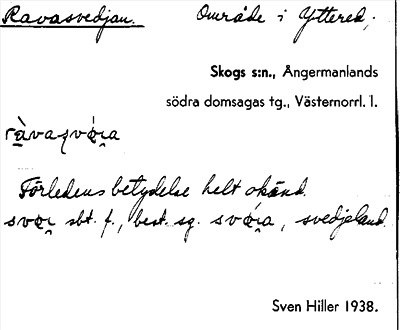 Ravasvedjan. Område i Yttered,
Skogs s:n., Ångermanlands
södra domsagas tg., Västernorrl. l.
Förledens betydelse helt okänd.
sbt. f., best. sg. , svedjeland.
Sven Hiller 1938.